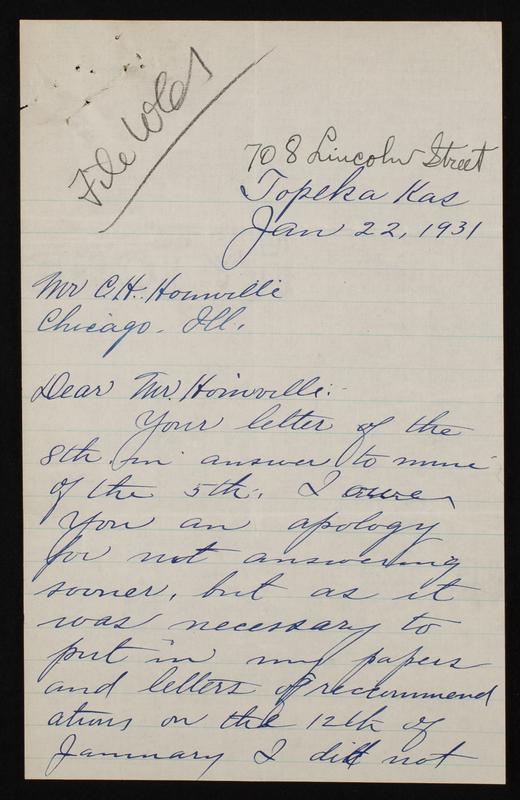 File
708 Lincoln Street
Topeka Kas
Jan 22, 1931
Mr C.H. Homville
Chicago. Ill.
Dear Mr. Homville:-
Your letter of the
8th. in answer to mine
of the 5th. I owe
you an apology
for not answering
sooner, but as it
was necessary to
put in my papers
and letters of recommend
ations on the 12th of
January I did not